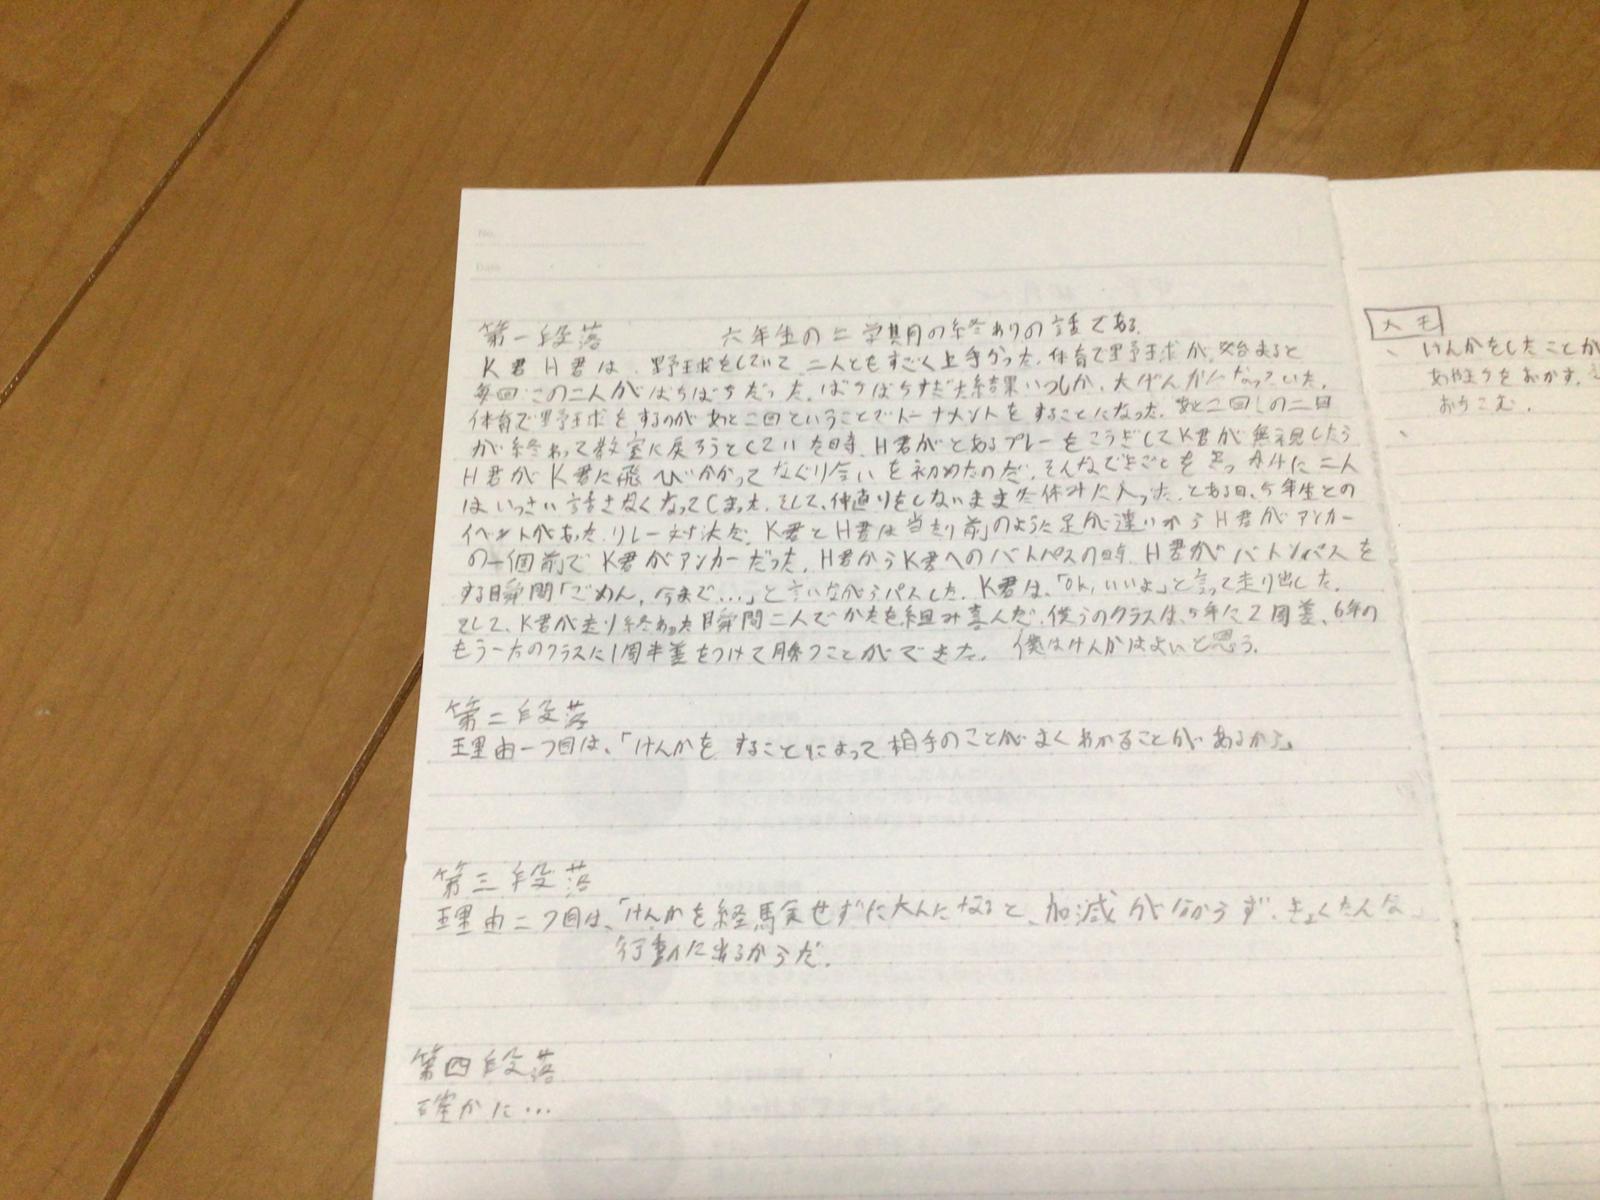 No.
Date
第一段落　六年生の二学期の終わりの話である。
K君H君は、野球をしていて二人ともすごく上手かった。体育で野球が始まると
毎回この二人がばちばちだった。ばちばちすぎた結果いつしか、大げんかになっていた。
体育で野球をするのがあと二回ということでトーナメントをすることになった。あと二回しの二回
が終わって教室に戻ろうとしていた時、H君がとあるプレーをこうぎしてK君が無視したら
H君がK君に飛びかかってなぐり合いを初めたのだ。そんなできごとをきっかけに二人
はいっさい話さなくなってしまった。そして、仲直りをしないまま冬休みに入った。とある日、5年生との
イベントがあった。リレー対決だ。K君とH君は当たり前のように足が速いからH君がアンカー
の一個前でK君がアンカーだった。H君からK君へのバトパスの時、H君がバトンパスを
する瞬間「ごめん、今まで…」と言いながらパスした。K君は、「OK、いいよ」と言って走り出した。
そして、K君が走り終わった瞬間二人でかたを組み喜んだ。僕らのクラスは、5年に2周差、6年の
もう一方のクラスに1周半差をつけて勝つことができた。僕はけんかはよいと思う。
第二段落
理由一つ目は、「けんかをすることによって相手のことがよくわかることがあるから」
第三段落
理由二つ目は、「けんかを経験せずに大人になると、加減が分からず、きょくたんな」
行動に出るからだ。
第四段落
確かに…
メモ
、けんかをしたことが
あやまちをおかす。
おちこむ。
、